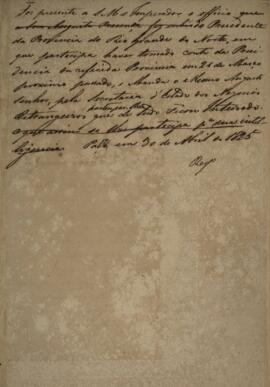 Foi presente a S. M. o Imperador o officio que
o nomeado Presidente
da Provincia do Rio Grande do Norte, em
que participa haver tomado conta da Presi
dencia da referida Provincia em 21 de Março
proximo passado, e Manda o Mesmo Augusto
Senhor, pela Secretaria d'Estado dos Negocios
Estrangeiros participar que de tudo Ficou Inteirado
o que assim se lhe participa pª sua intel
ligencia. Palº em 30 de Abril de 1825